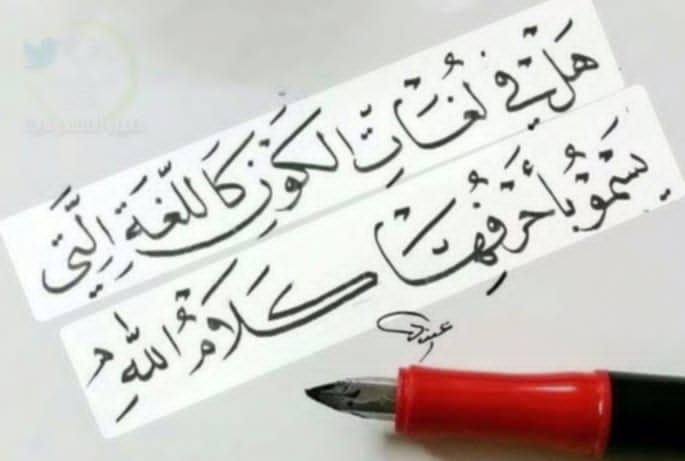 هَلْ في لُغَاتِ الكَوْنِ كَاللّغَةِ الَّتي
يَسْمُوْ بأَحْرَفُهَا كَلَامُ اللّهِ